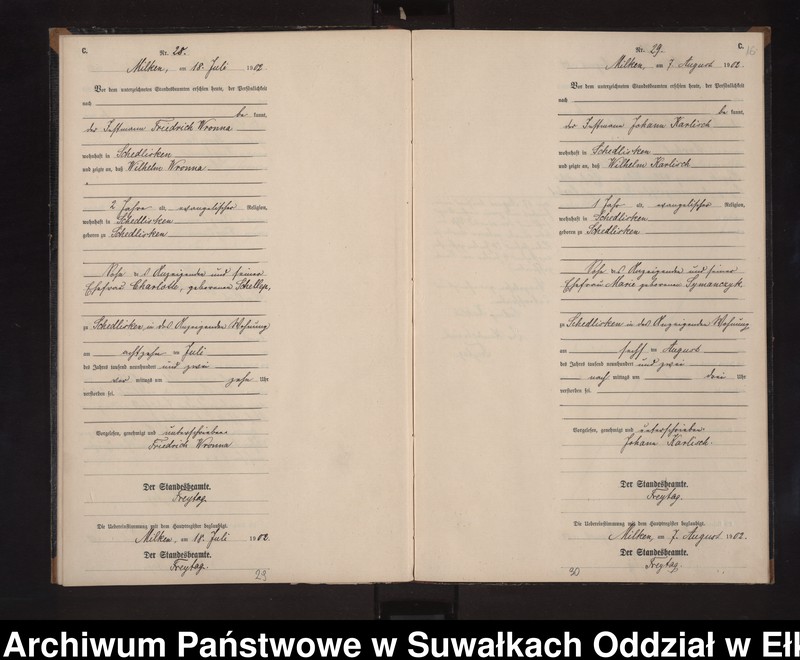 C.
Nr. 28.
Milken, am 18. Juli 1902
Vor dem unterzeichneten Standesbeamten erschien heute, der Persönlichkeit
nach
be kannt,
der Instmann Friedrich Wronna
wohnhaft in Schedlisken
und zeigte an, daß Wilhelm Wronna
2 Jahre alt, evangelischer Religion,
wohnhaft in Schedlisken
geboren zu Schedlisken
Sohn des Anzeigenden und seiner
Ehefrau Charlotte, geborenen
zu Schedlisken in des Anzeigenden Wohnung
am achtzehn ten Juli
des Jahres tausend neunhundert und zwei
vor mittags um zehn Uhr
verstorben sei.
Vorgelesen, genehmigt und unterschrieben
Friedrich Wronna
Der Standesbeamte.
Freytag.
Die Uebereinstimmung mit dem Hauptregister beglaubigt.
Milken, am 18. Juli 1902.
Der Standesbeamte.
Freytag.
29
Nr. 29.
C.
16
Milken, am 7. August 1902.
Vor dem unterzeichneten Standesbeamten erschien heute, der Persönlichkeit
nach
be kannt,
der Instmann Johann Karlisch
wohnhaft in Schedlisken
und zeigte an, daß Wilhelm Karlisch
1 Jahr alt, evangelischer Religion,
wohnhaft in Schedlisken
geboren zu Schedlisken
Sohn des Anzeigenden und seiner
Ehefrau Marie geborenen Symanczyk,
zu Schedlisken in des Anzeigenden Wohnung
am ten August
des Jahres tausend neunhundert und zwei
nach mittags um drei Uhr
verstorben sei.
Vorgelesen, genehmigt und unterschrieben
Johann Karlisch.
Der Standesbeamte.
Freytag.
Die Uebereinstimmung mit dem Hauptregister beglaubigt.
Milken, am 7. August 1902.
Der Standesbeamte.
Freytag.
30
Archiwum Państwowe w Suwałkach Oddział w Ełk